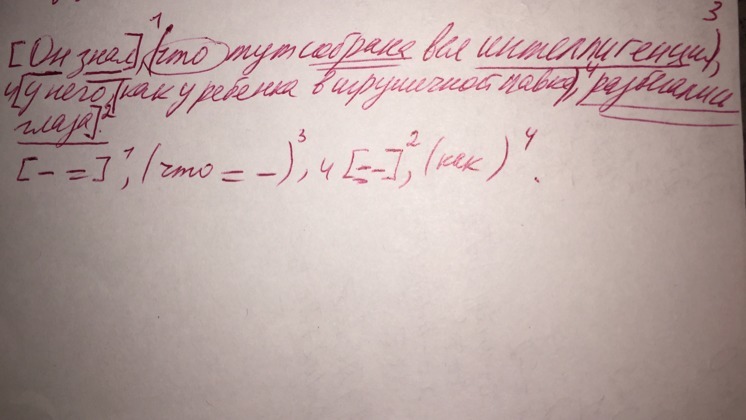 1 3
[Он знал], (что тут собрана вся интеллигенция),
и [у него, (как у ребенка в игрушечной лавке), 4 разбежались
глаза]. 2
[- =] 1, (что = -) 3, и [= -] 2, (как ) 4.